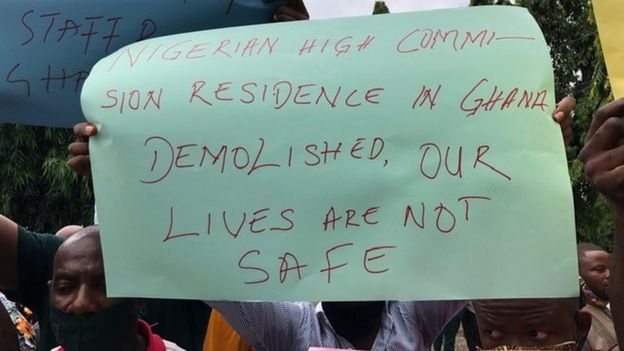 STAFF
GHA
NIGERIAN HIGH COMMI-
SSION RESIDENCE IN GHANA
DEMOLISHED, OUR
LIVES ARE NOT
SAFE